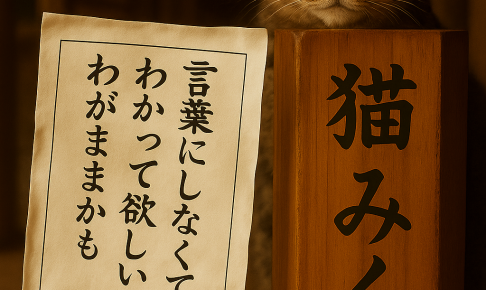 言葉にしなくて
わかって欲しい
わがままかも
猫みく